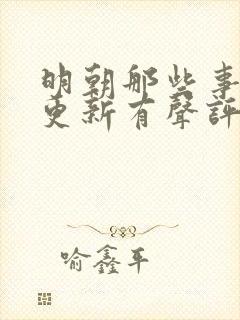 明朝那些事
更新有聲評
喻鑫平